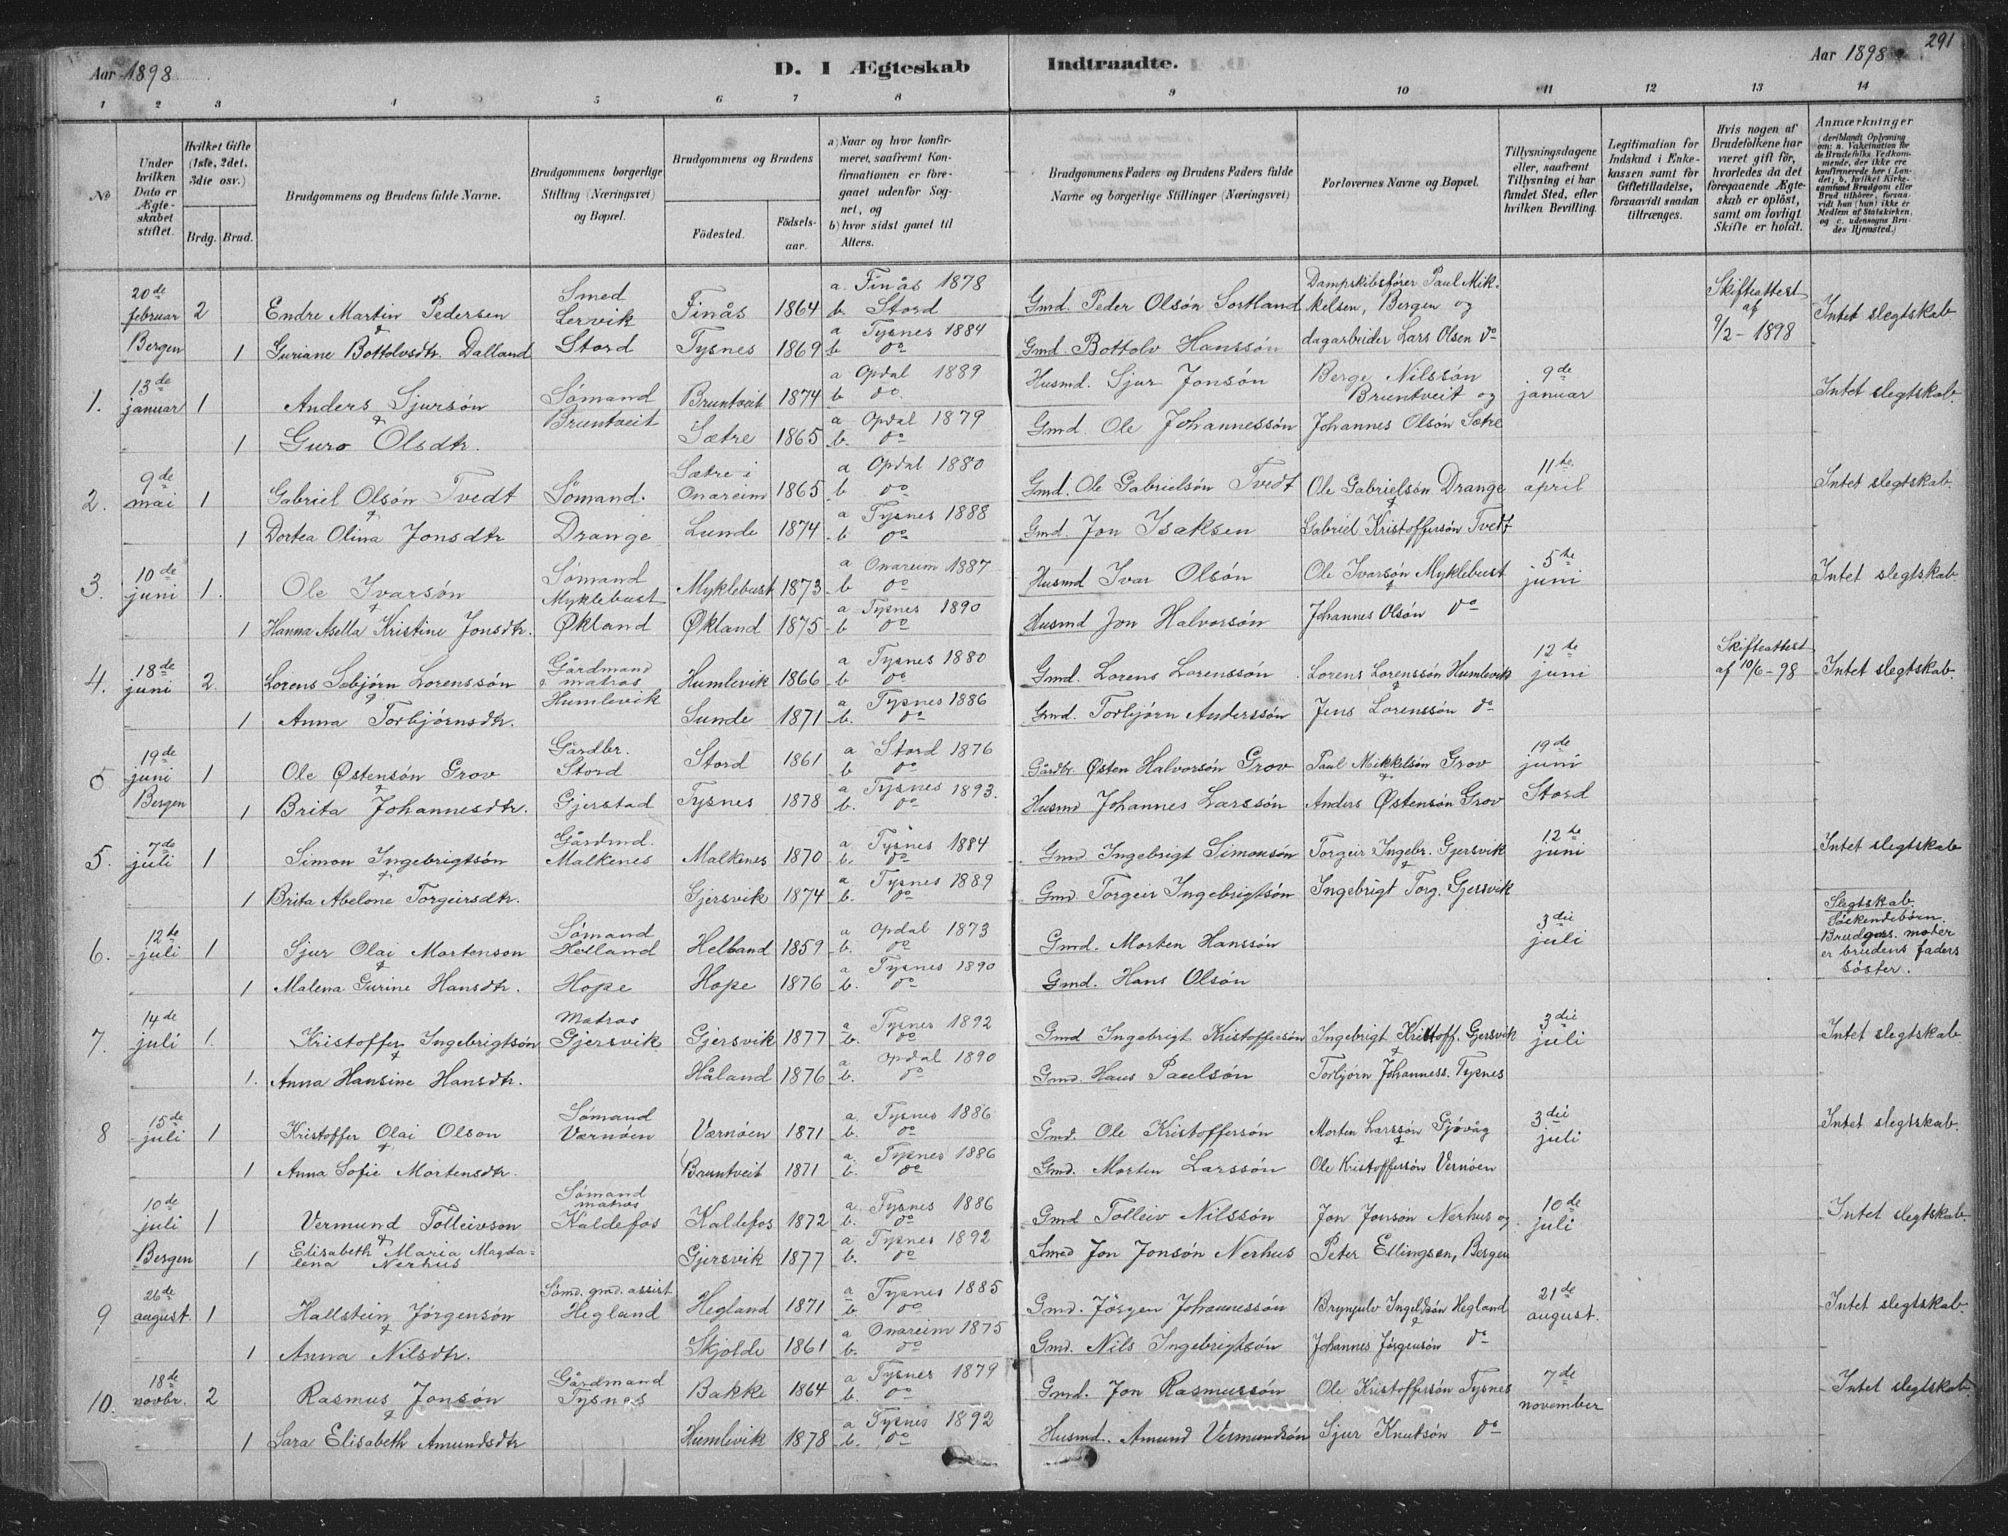 291
Aar 1898
D. I Ægteskab Indtraadte.
Aar 1898
1 2 3 4 5 6 7 8 9 10 11 12 13 14
No
Under hvilken Dato er Ægteskabet stiftet.
Hvilket Gifte (1ste, 2det, 3die osv.)
Brdg. Brud.
Brudgommens og Brudens fulde Navne.
Brudgommens borgerlige Stilling (Næringsvei) og Bopæl.
Brudgommens og Brudens
Födested.
Födselsaar.
a) Naar og hvor konfirmeret, saafremt Konfirmationen er foregaaet udenfor Sognet, og
b) hvor sidst gaaet til Alters.
Brudgommens Faders og Brudens Faders fulde Navne og borgerlige Stillinger (Næringsvei)
Forlovernes Navne og Bopæl.
Tillysningsdagene eller, saafremt Tillysning ei har fundet Sted, efter hvilken Bevilling.
Legitimation for Indskud i Enkekassen samt for Giftetilladelse, forsaavidt saadan tiltrænges.
Hvis nogen af Brudefolkene har været gift för, hvorledes da det foregaaende Ægteskab er oplöst, samt om lovligt Skifte er holdt.
Anmærkninger
(deriblandt Oplysning om: a. Vakcination for de Brudefolks Vedkommende, der ikke ere konfirmerede her i Landet, b. hvilket Kirkesamfund Brudgom eller Brud tilhörer, forsaavidt han (hun) ikke er Medlem af Statskirken, og c. udensogns Brudes Hjemsted.)
20de februar Bergen 2 Endre Martin Pedersen Smed Lervik Stord Finås 1864 a. Finås 1878 b. Stord Gmd. Peder Olsön Sortland Dampskibsfører Paul Mikkelsen, Bergen og Skifteattest af 9/2-1898 Intet slegtskab
1 Guriane Bottolvsdtr. Dalland Tysnes 1869 a Tysnes 1884 b do Gmd. Bottolv Hanssön dagarbeider Lars Olsen do
1. 13de januar 1 Anders Sjursön Sömand Bruntveit Bruntveit 1874 a Opdal 1889 b do. Husmd. Sjur Jonsön Berge Nilssön Bruntveit og 9de januar Intet slegtskab
1 Guro Olsdtr. Sætre 1865 a Opdal 1879 b. do Gmd. Ole Johannessön Johannes Olsön Sætre
2. 9de mai 1 Gabriel Olsön Tvedt Sömand. Sætre i Onareim 1865 a Opdal 1880 b do Gmd. Ole Gabrielsön Tvedt Ole Gabrielsön Drange 11te april Intet slegtskab.
1 Dortea Olina Jonsdtr Drange Lunde 1874 a Tysnes 1888 b. do Gmd. Jon Isaksen Gabriel Kristoffersön Tvedt
3. 10de juni 1. Ole Ivarsön Sömand Myklebust Myklebust 1873 a Onareim 1887 b do Husmd Ivar Olsön Ole Ivarsön Myklebust 5te juni Intet slegtskab
1 Hanna Asella Kristine Jonsdtr. Økland Økland 1875 a Tysnes 1890 b do Husmd Jon Halvorsön Johannes Olsön do
4. 18de juni 2. Lorens Sebjörn Lorenssön Gårdmand & matros Humlevik Humlevik 1866 a Tysnes 1880 b. do Gmd. Lorens Lorenssön Lorens Lorenssön Humlevik 12te juni Skifteattest af 10/6-98 Intet slegtskab
1 Anna Torbjörnsdtr. Sunde 1871 a Tysnes 1886 b. do Gmd. Torbjörn Anderssön Jens Lorenssön do
5 19de juni Bergen 1 Ole Østensön Grov Gårdbr. Stord Stord 1861 a Stord 1876 b do Gårdbr. Østen Halvorsön Grov Paul Mikkelsön Grov 19de juni Stord
1 Brita Johannesdtr. Gjerstad Tysnes 1878 a Tysnes 1893. b. do Husmd Johannes Larssön Anders Østensön Grov
5. 7de juli 1 Simon Ingebrigtsön Gårdmd. Malkenes Malkenes 1870 a Tysnes 1884 b. do Gmd Ingebrigt Simonsön Torgeir Ingebr. Gjersvik 12te juni Intet slegtskab
1 Brita Abelone Torgeirsdtr. Gjersvik 1874 a Tysnes 1889 b. do Gmd. Torgeir Ingebrigtsön Ingebrigt Torg. Gjersvik
6. 12te juli 1 Sjur Olai Mortenson Sömand Helland Helland 1859 a. Opdal 1873 b. do Gmd. Morten Hanssön 3die juli Slegtskab. Söskendebörn. Brudgms. moder er brudens faders söster.
1 Malena Gurine Hansdtr. Hope Hope 1876 a Tysnes 1890 b. do Gmd. Hans Olsön
7. 14de juli 1. Kristoffer Ingebrigtsön Matros Gjersvik Gjersvik 1877 a Tysnes 1892 b. do Gmd Ingebrigt Kristoffersön Ingebrigt Kristoff. Gjersvik 3die juli Intet slegtskab
1. Anna Hansine Hansdtr. Håland 1876 a Opdal 1890 b. do Gmd. Hans Paulsön Torbjörn Johanness. Tysnes
8 15de juli 1 Kristoffer Olai Olson Sömand Værnöen Værnöen 1871 a. Tysnes 1886 b. do Gmd. Ole Kristoffersön Morten Larssön Gjövåg 3die juli Intet slegtskab.
1 Anna Sofie Mortensdtr. Bruntveit 1871 a. Tysnes 1886 b. do Gmd. Morten Larssön Ole Kristoffersön Vernöen
10de juli Bergen 1 Vermund Tolleivson Sömand matros Kaldefos Kaldefos 1872 a. Tysnes 1886 b. do Gmd Tolleiv Nilssön Jon Jonsön Nerhus og 10de juli Intet slegtskab.
1 Elisabeth Maria Magdalena Nerhus Gjersvik 1877 a Tysnes 1892 b. do Smed Jon Jonsön Nerhus Peter Ellingsen, Bergen
9 26de august 1 Hallstein Jörgensön Sömd. gmd. assist Hegland Hegland 1871 a Tysnes 1885 b. do Gmd. Jörgen Johannessön Brynjulv Hegland 21de august. Intet slegtskab.
1 Anna Nilsdtr. Skjolde 1861 a Onareim 1875 b. do Gmd. Nils Ingebrigtsön Johannes Jörgensön do
10. 18de novbr. 2 Rasmus Jonsön Gårdmand Tysnes Bakke 1864 a Tysnes 1879 b. do Gmd. Jon Rasmussön Ole Kristoffersön Tysnes 7de november Intet slegtskab
1 Sara Elisabeth Amundsdtr Humlevik 1878 a Tysnes 1892 b. do Husmd. Amund Vermundsön Sjur Knutsön do